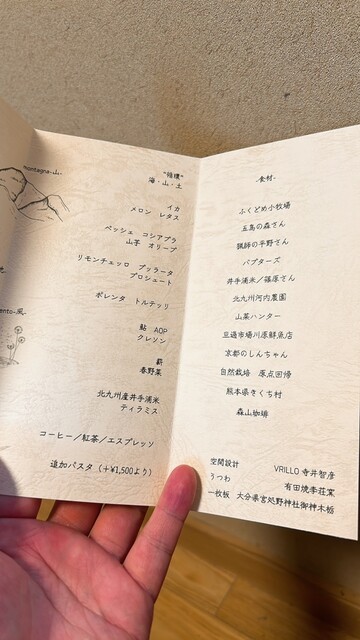 montagna-山-
ento-風-
"循環"
海・山・土
イカ
メロン レタス
ペッシェ コシアブラ
山芋 オリーブ
リモンチェッロ ブッラータ
プロシュート
ポレンタ トルテッリ
鮎 AOP
クレソン
薪
春野菜
北九州産井手浦米
ティラミス
コーヒー/紅茶/エスプレッソ
追加パスタ(+¥1,500より)
-食材-
ふくどめ小牧場
五島の森さん
猟師の平野さん
バプターズ
井手浦米/篠原さん
北九州河内農園
山菜ハンター
旦過市場川原鮮魚店
京都のしんちゃん
自然栽培 原点回帰
熊本県きくち村
森山珈琲
空間設計 VRILLO 寺井智彦
うつわ 有田焼李荘窯
一枚板 大分県宮処野神社御神木栃